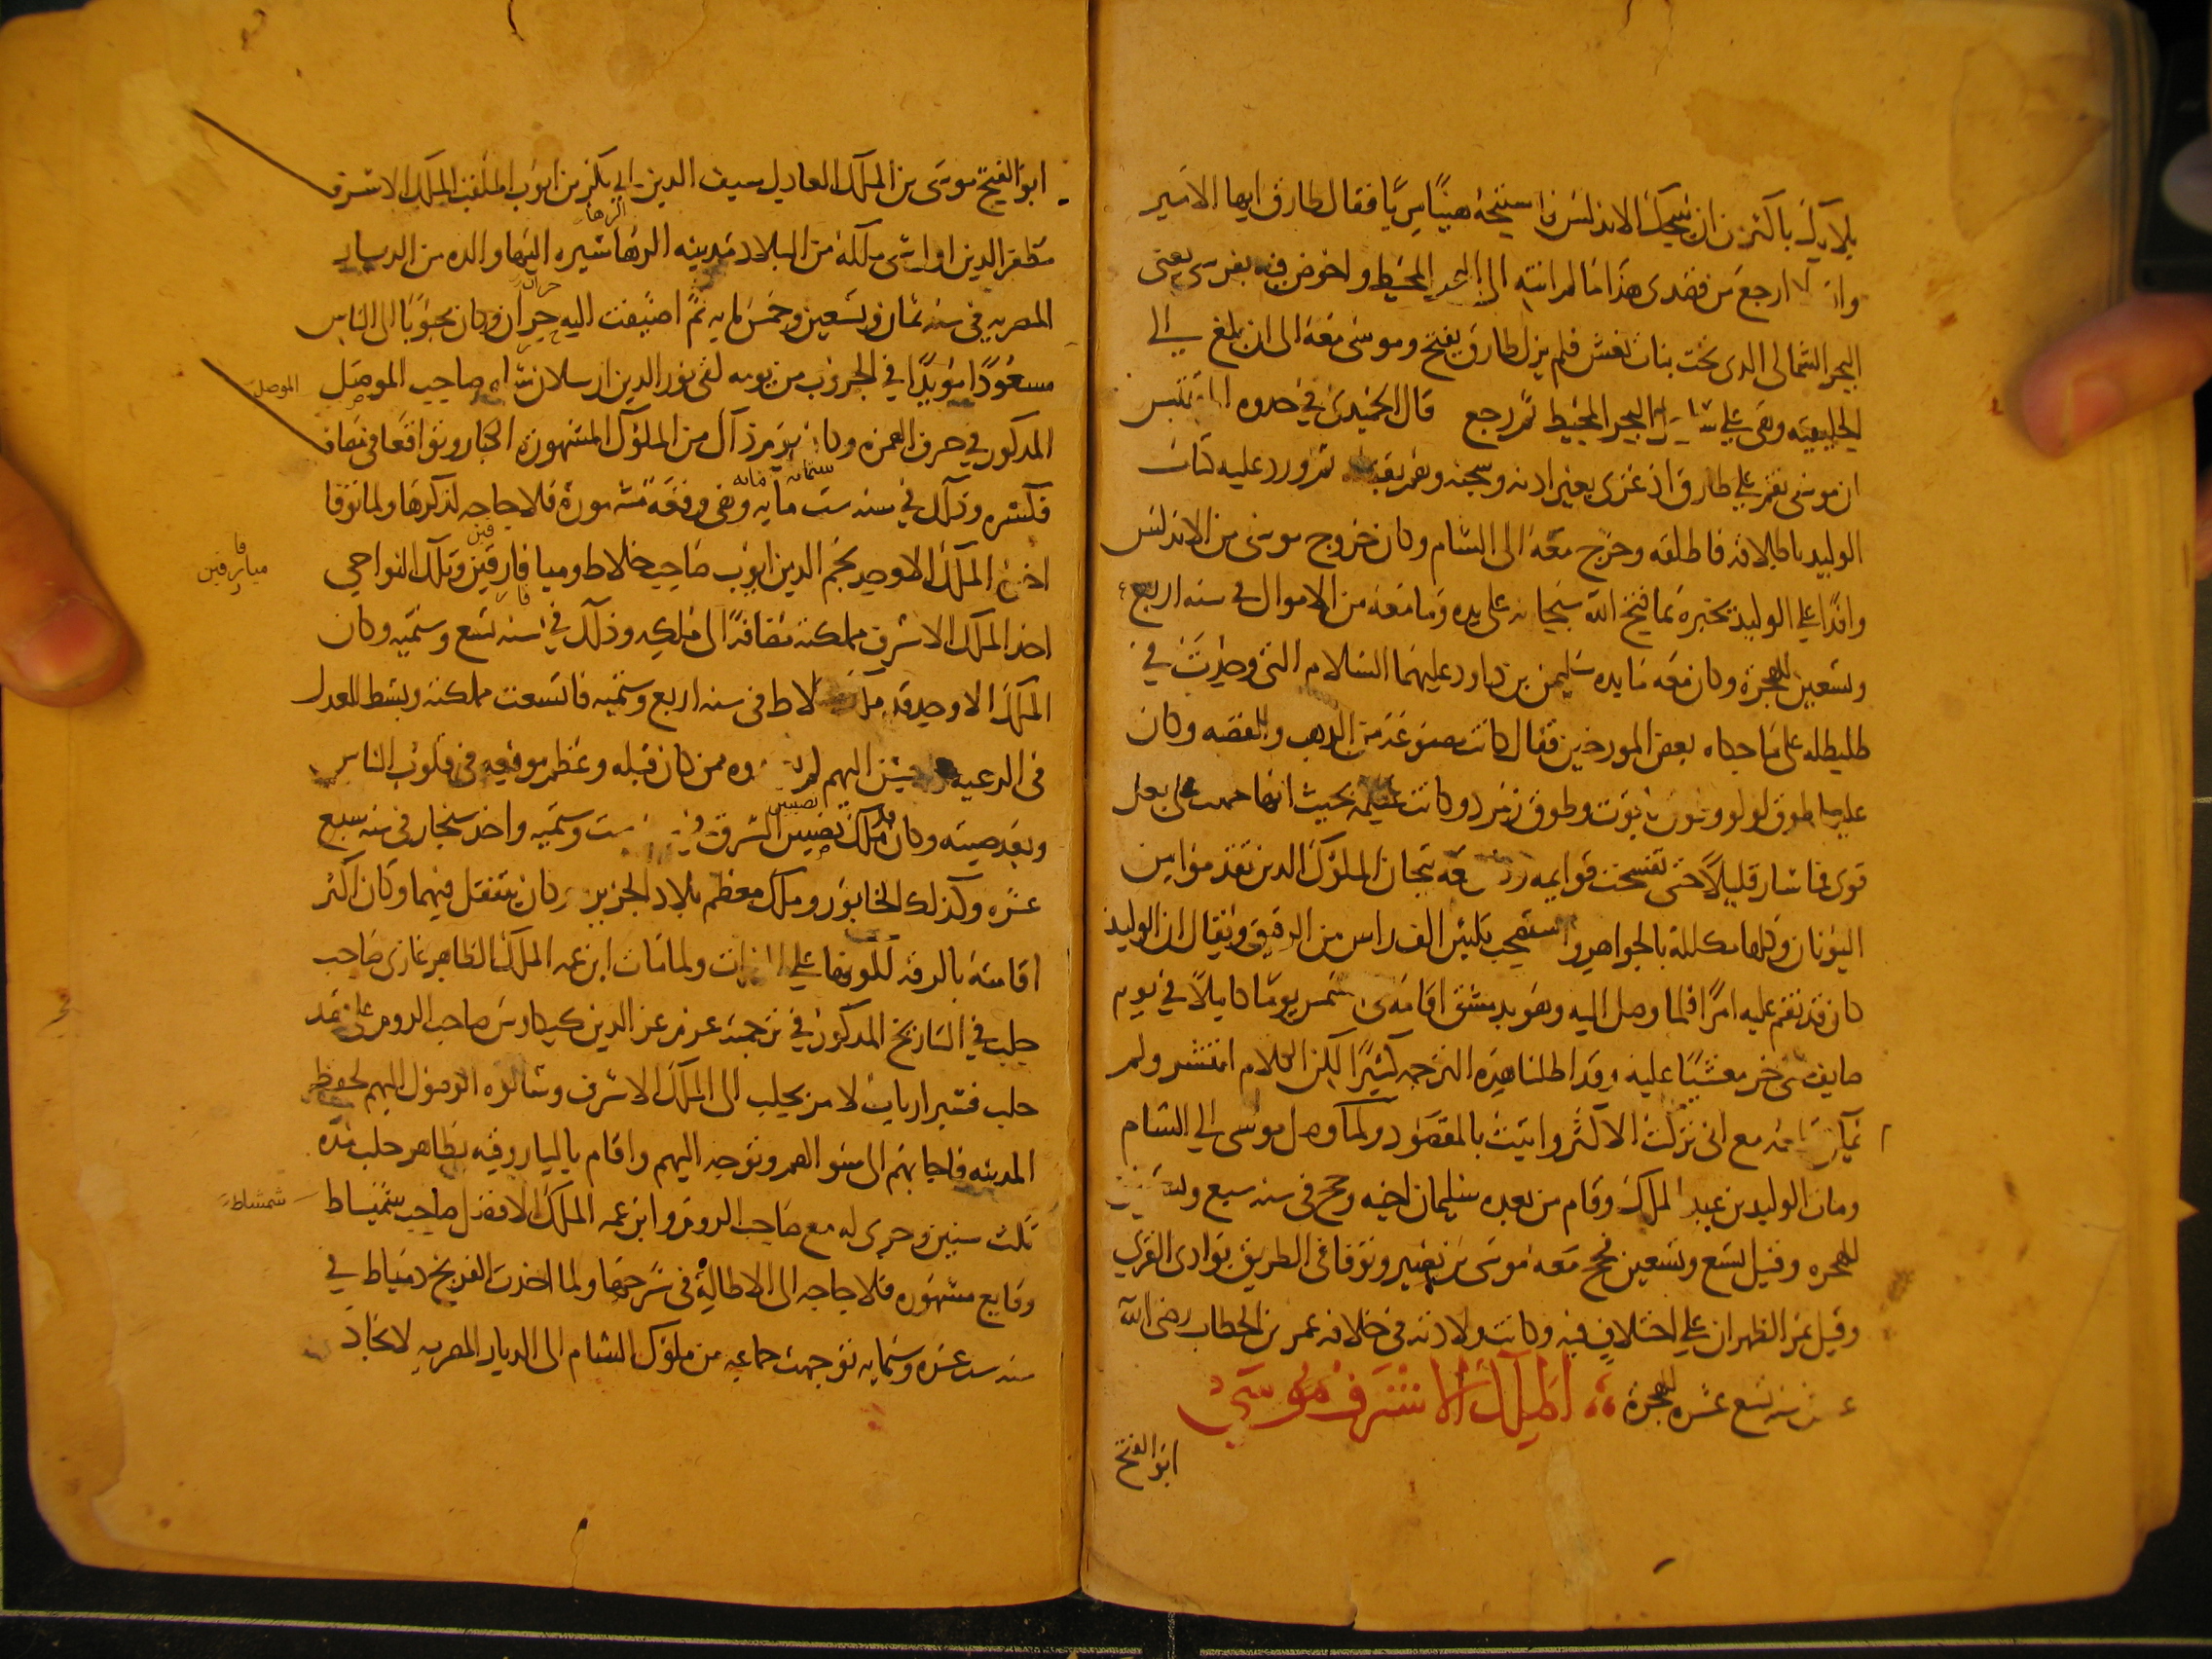 بلاريك باكثر من ان نبيحك الاندلس فاستبحه هنيًا مريًا فقال طارق ايها الامير
والله لا ارجع من قصدى هذا مالم انته الى البحر المحيط واخوض فيه بفرسى يعنى
البحر الشمالى الذى تحت بنات نعش فلم يزل طارق يفتح وموسى معه الى ان بلغ الى
الجليقيه وهى على ساحل البحر المحيط ثم رجع قال الحميدى فى جذوة المقتبس
ان موسى نقم على طارق اذ غزى بغير اذنه وسجنه وهم بقتله ثم ورد عليه كتاب
الوليد باطلاقه فاطلقه وخرج معه الى الشام وكان خروج موسى من الاندلس
وافدًا على الوليد يخبره بما فتح الله سبحانه على يده وما معه من الاموال فى سنه اربع
وتسعين للهجرة وكان معه مايده سليمن بن داود عليهما السلام التى وجدت فى
طليطله على ما حكاه بعض المورخين فقال كانت مصنوعة من الذهب والفضه وكان
عليها طوق لولو وطوق ياقوت وطوق زمرد وكانت عظيمه بحيث انها حملت على بغل
قوى فما سار قليلاً حتى تفسخت قوايمه وكان معه تيجان الملوك الذين تقدموا من
اليونان وكلها مكللة بالجواهر واستصحب ثلثين الف راس من الرقيق ويقال ان الوليد
كان قد نقم عليه امرًا فلما وصل اليه وهو بدمشق اقامه فى الشمس يومًا كاملاً فى يوم
صايف حتى خر مغشيًا عليه وقد اطلنا هذه الترجمه كثيرًا لكن الكلام انتشر ولم
يمكن قطعه مع انى تركت الاكثر واتيت بالمقصود ولما وصل موسى الى الشام
ومات الوليد بن عبد الملك وقام من بعده سليمان اخيه وحج فى سنه سبع وتسعين
للهجره وقيل تسع وتسعين حج معه موسى بن نصير وتوفا فى الطريق بوادى القرى
وقيل بمر الظهران على اختلاف فيه وكانت ولادته فى خلافه عمر بن الخطاب رضى الله
عنه فى سنه تسع عشره للهجرة الملك الاشرف موسى
ابو الفتح
ابو الفتح موسى بن الملك العادل سيف الدين ابى بكر بن ايوب الملقب الملك الاشرف
الرها
مظفر الدين اول شى ملكه من البلاد مدينه الرها سيره اليها والده من الديار
حران
المصريه فى سنه ثمان وتسعين وخمس مايه ثم اضيفت اليه حران وكان محبوبًا الى الناس
مسعودًا مويدًا فى الحروب من يومه لقى نور الدين ارسلان شاه صاحب الموصل
الموصل
المذكور فى حرف الهمزه وكان يوميذ من الملوك المشهورة الكبار وتواقعا فى مصاف
ستمايه مايه
فكسره وذلك فى سنه ست مايه وهى وقعة مشهورة فلا حاجه لذكرها ولما توفا
فين
اخوه الملك الاوحد نجم الدين ايوب صاحب خلاط وميا فارقين وتلك النواحى
فا
ميارفين
فار
اخذ الملك الاشرف مملكته مضافةً الى ملكه وذلك فى سنه تسع وستميه وكان
الملك الاوحد قد ملك خلاط فى سنه اربع وستميه فاتسعت مملكته وبسط العدل
فى الرعيه واحسن اليهم لم يعهدوه ممن كان قبله وعظم موقعه فى قلوب الناس
نصيبين
وبعد صيته وكان قد ملك نصيبين الشرق فى سنه ست وستميه واخذ سنجار فى سنه سبع
عشره وكذلك الخابور وملك معظم بلاد الجزيره وكان يتنقل فيها وكان اكثر
اقامته بالرقه لكونها على الفرات ولما مات ابن عمه الملك الظاهر غازى صاحب
حلب فى التاريخ المذكور فى ترجمته عزم عز الدين كيكاوس صاحب الروم على قصد
حلب فسير ارباب الامر بحلب الى الملك الاشرف وسالوه الوصول اليهم لحفظ
المدينه فاجابهم الى سوالهم وتوجه اليهم واقام بالياروقيه بظاهر حلب مدة
ثلث سنين وجرى له مع صاحب الروم وابن عمه الملك الافضل صاحب سميساط
شمشاط
وقايع مشهوره فلا حاجه الى الاطالة فى شرحها ولما اخذت الفرنج دمياط فى
سنه ست عشره وستمايه توجهت جماعه من ملوك الشام الى الديار المصريه لانجاد